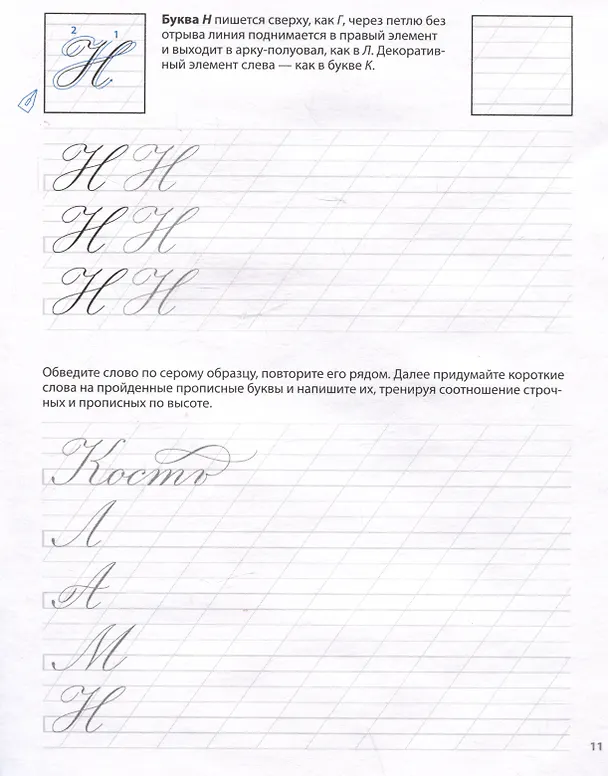 2 1
Н
Буква Н пишется сверху, как Г, через петлю без
отрыва линия поднимается в правый элемент
и выходит в арку-полуовал, как в Л. Декоратив-
ный элемент слева — как в букве К.
Н Н
Н Н
Н Н
Обведите слово по серому образцу, повторите его рядом. Далее придумайте короткие
слова на пройденные прописные буквы и напишите их, тренируя соотношение строч-
ных и прописных по высоте.
Кость
Л
А
М
Н
11